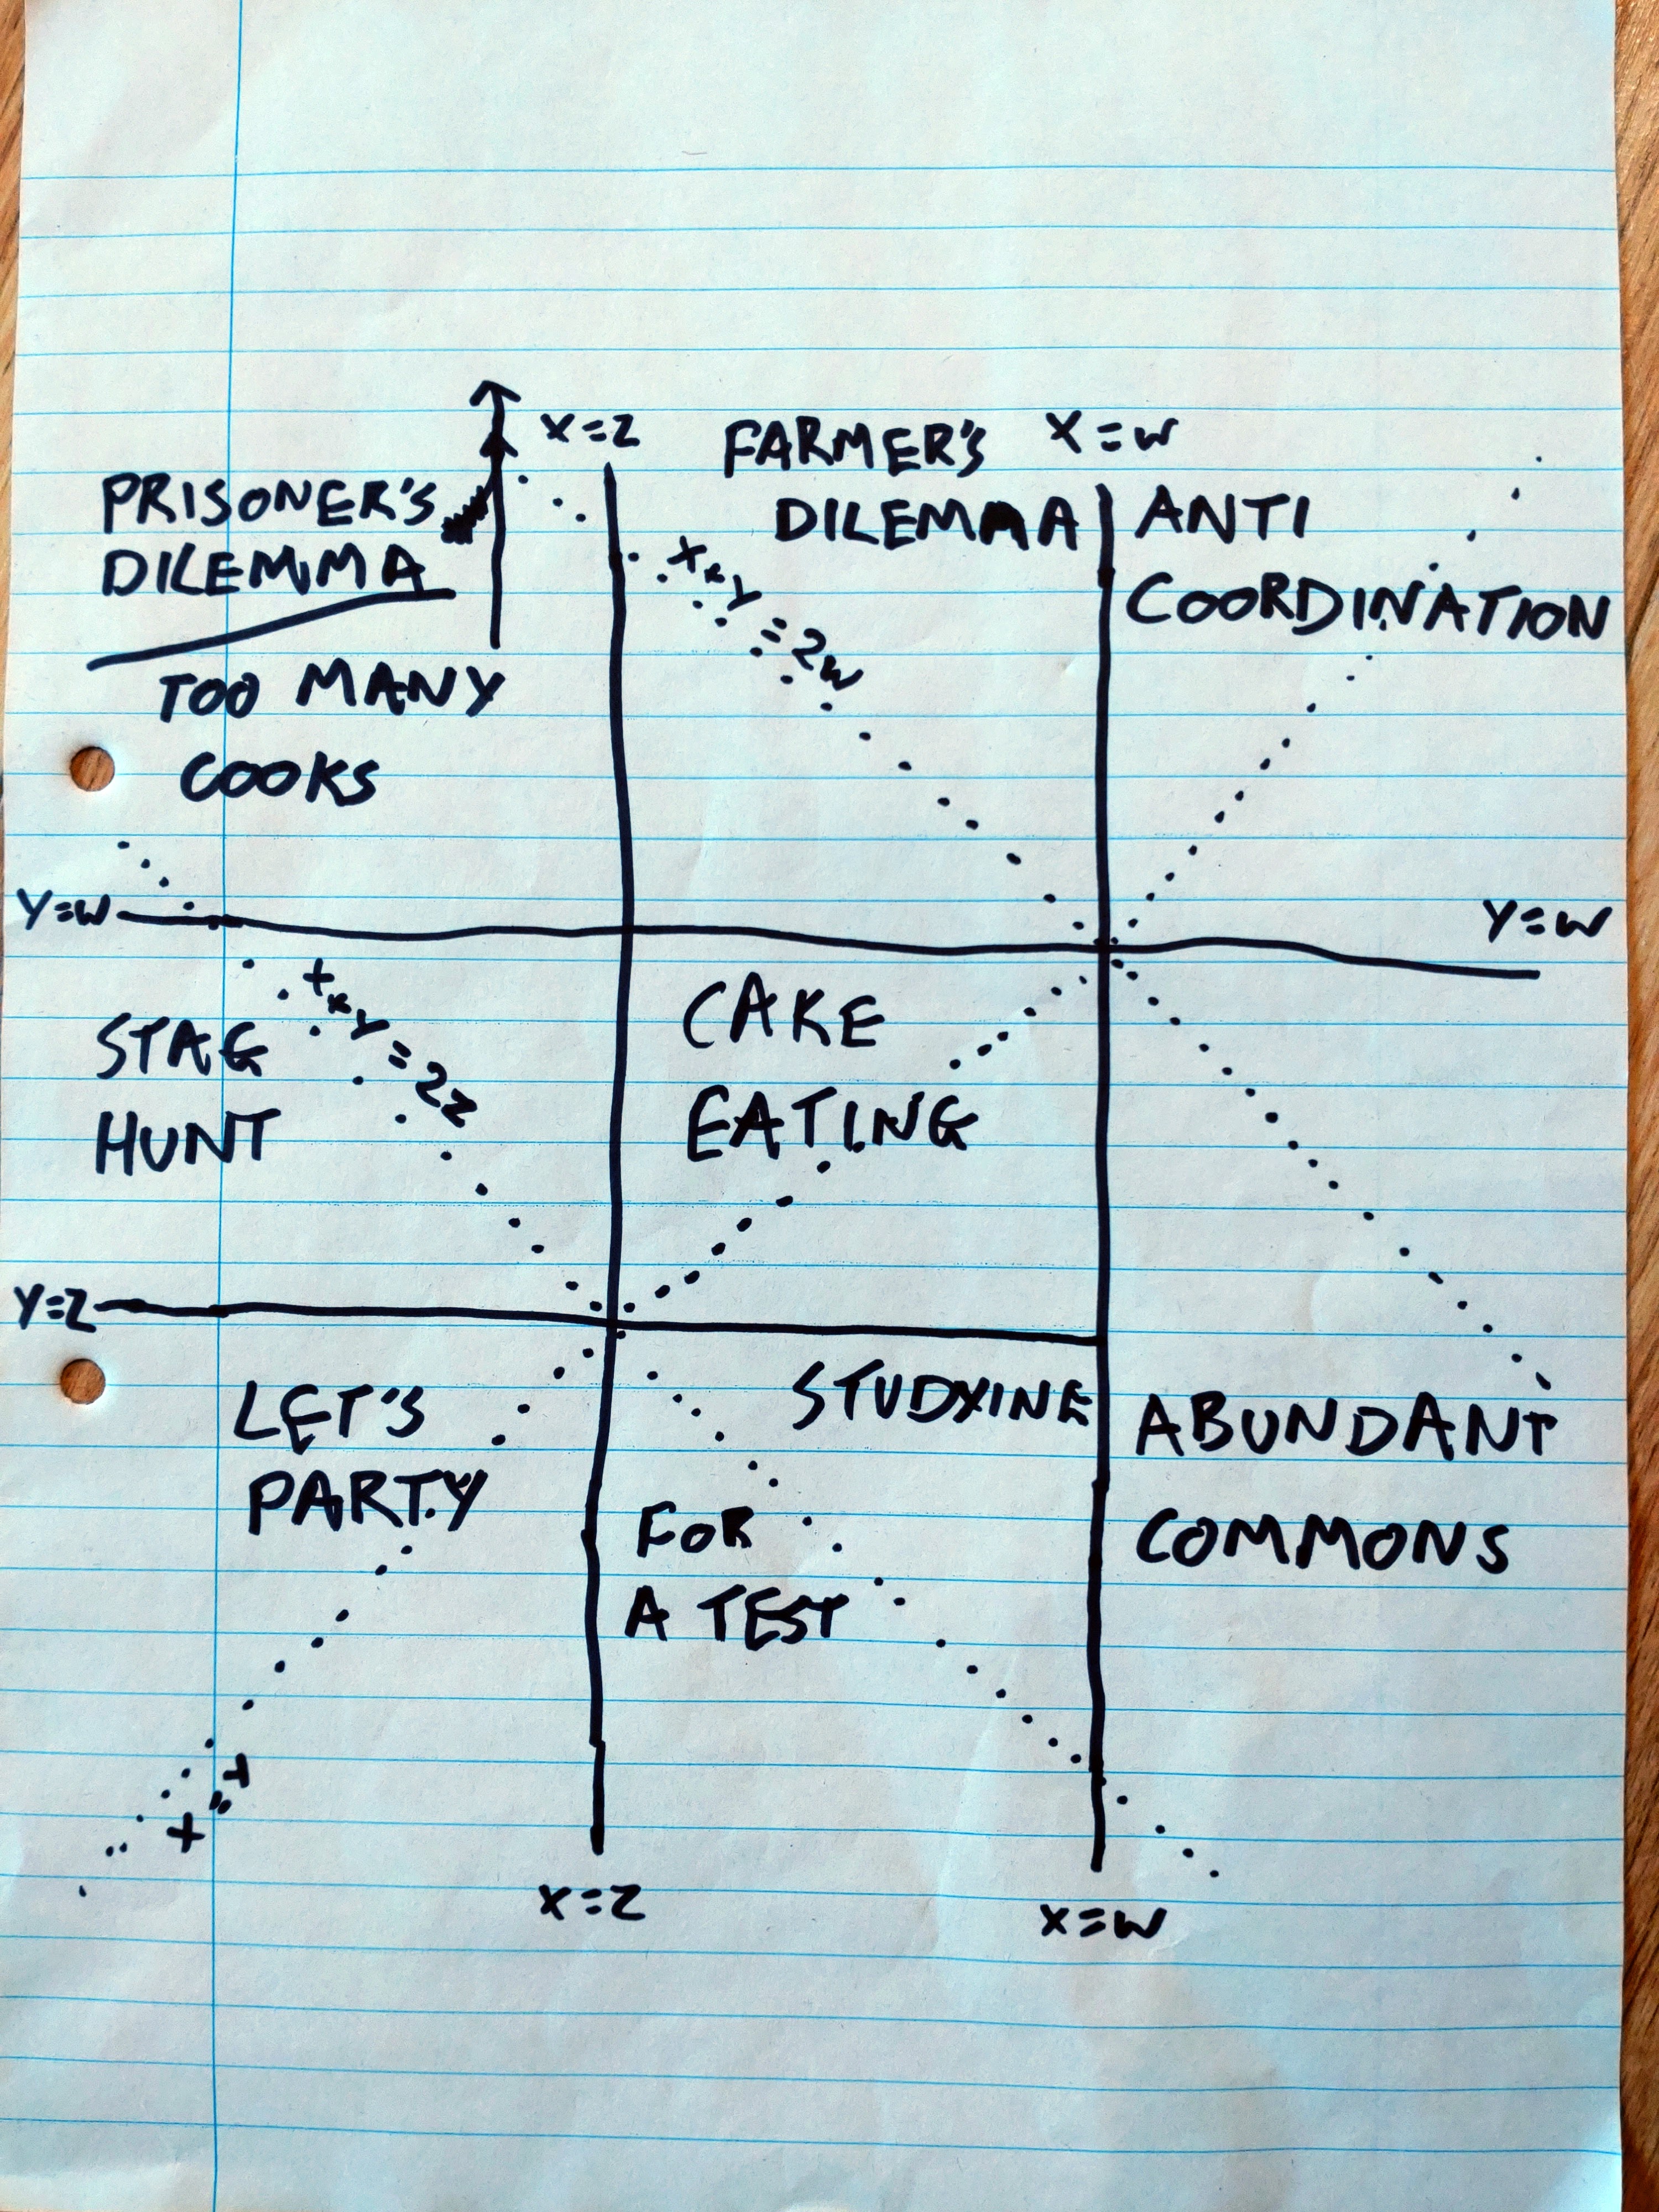 X=Z
FARMER'S
X=W
PRISONER'S
DILEMMA
DILEMMA
ANTI
COORDINATION
TOO MANY
COOKS
Y=W
Y=W
STAG
HUNT
CAKE
EATING
Y=Z
LET'S
PARTY
STUDYING
FOR
A TEST
ABUNDANT
COMMONS
X=Z
X=W